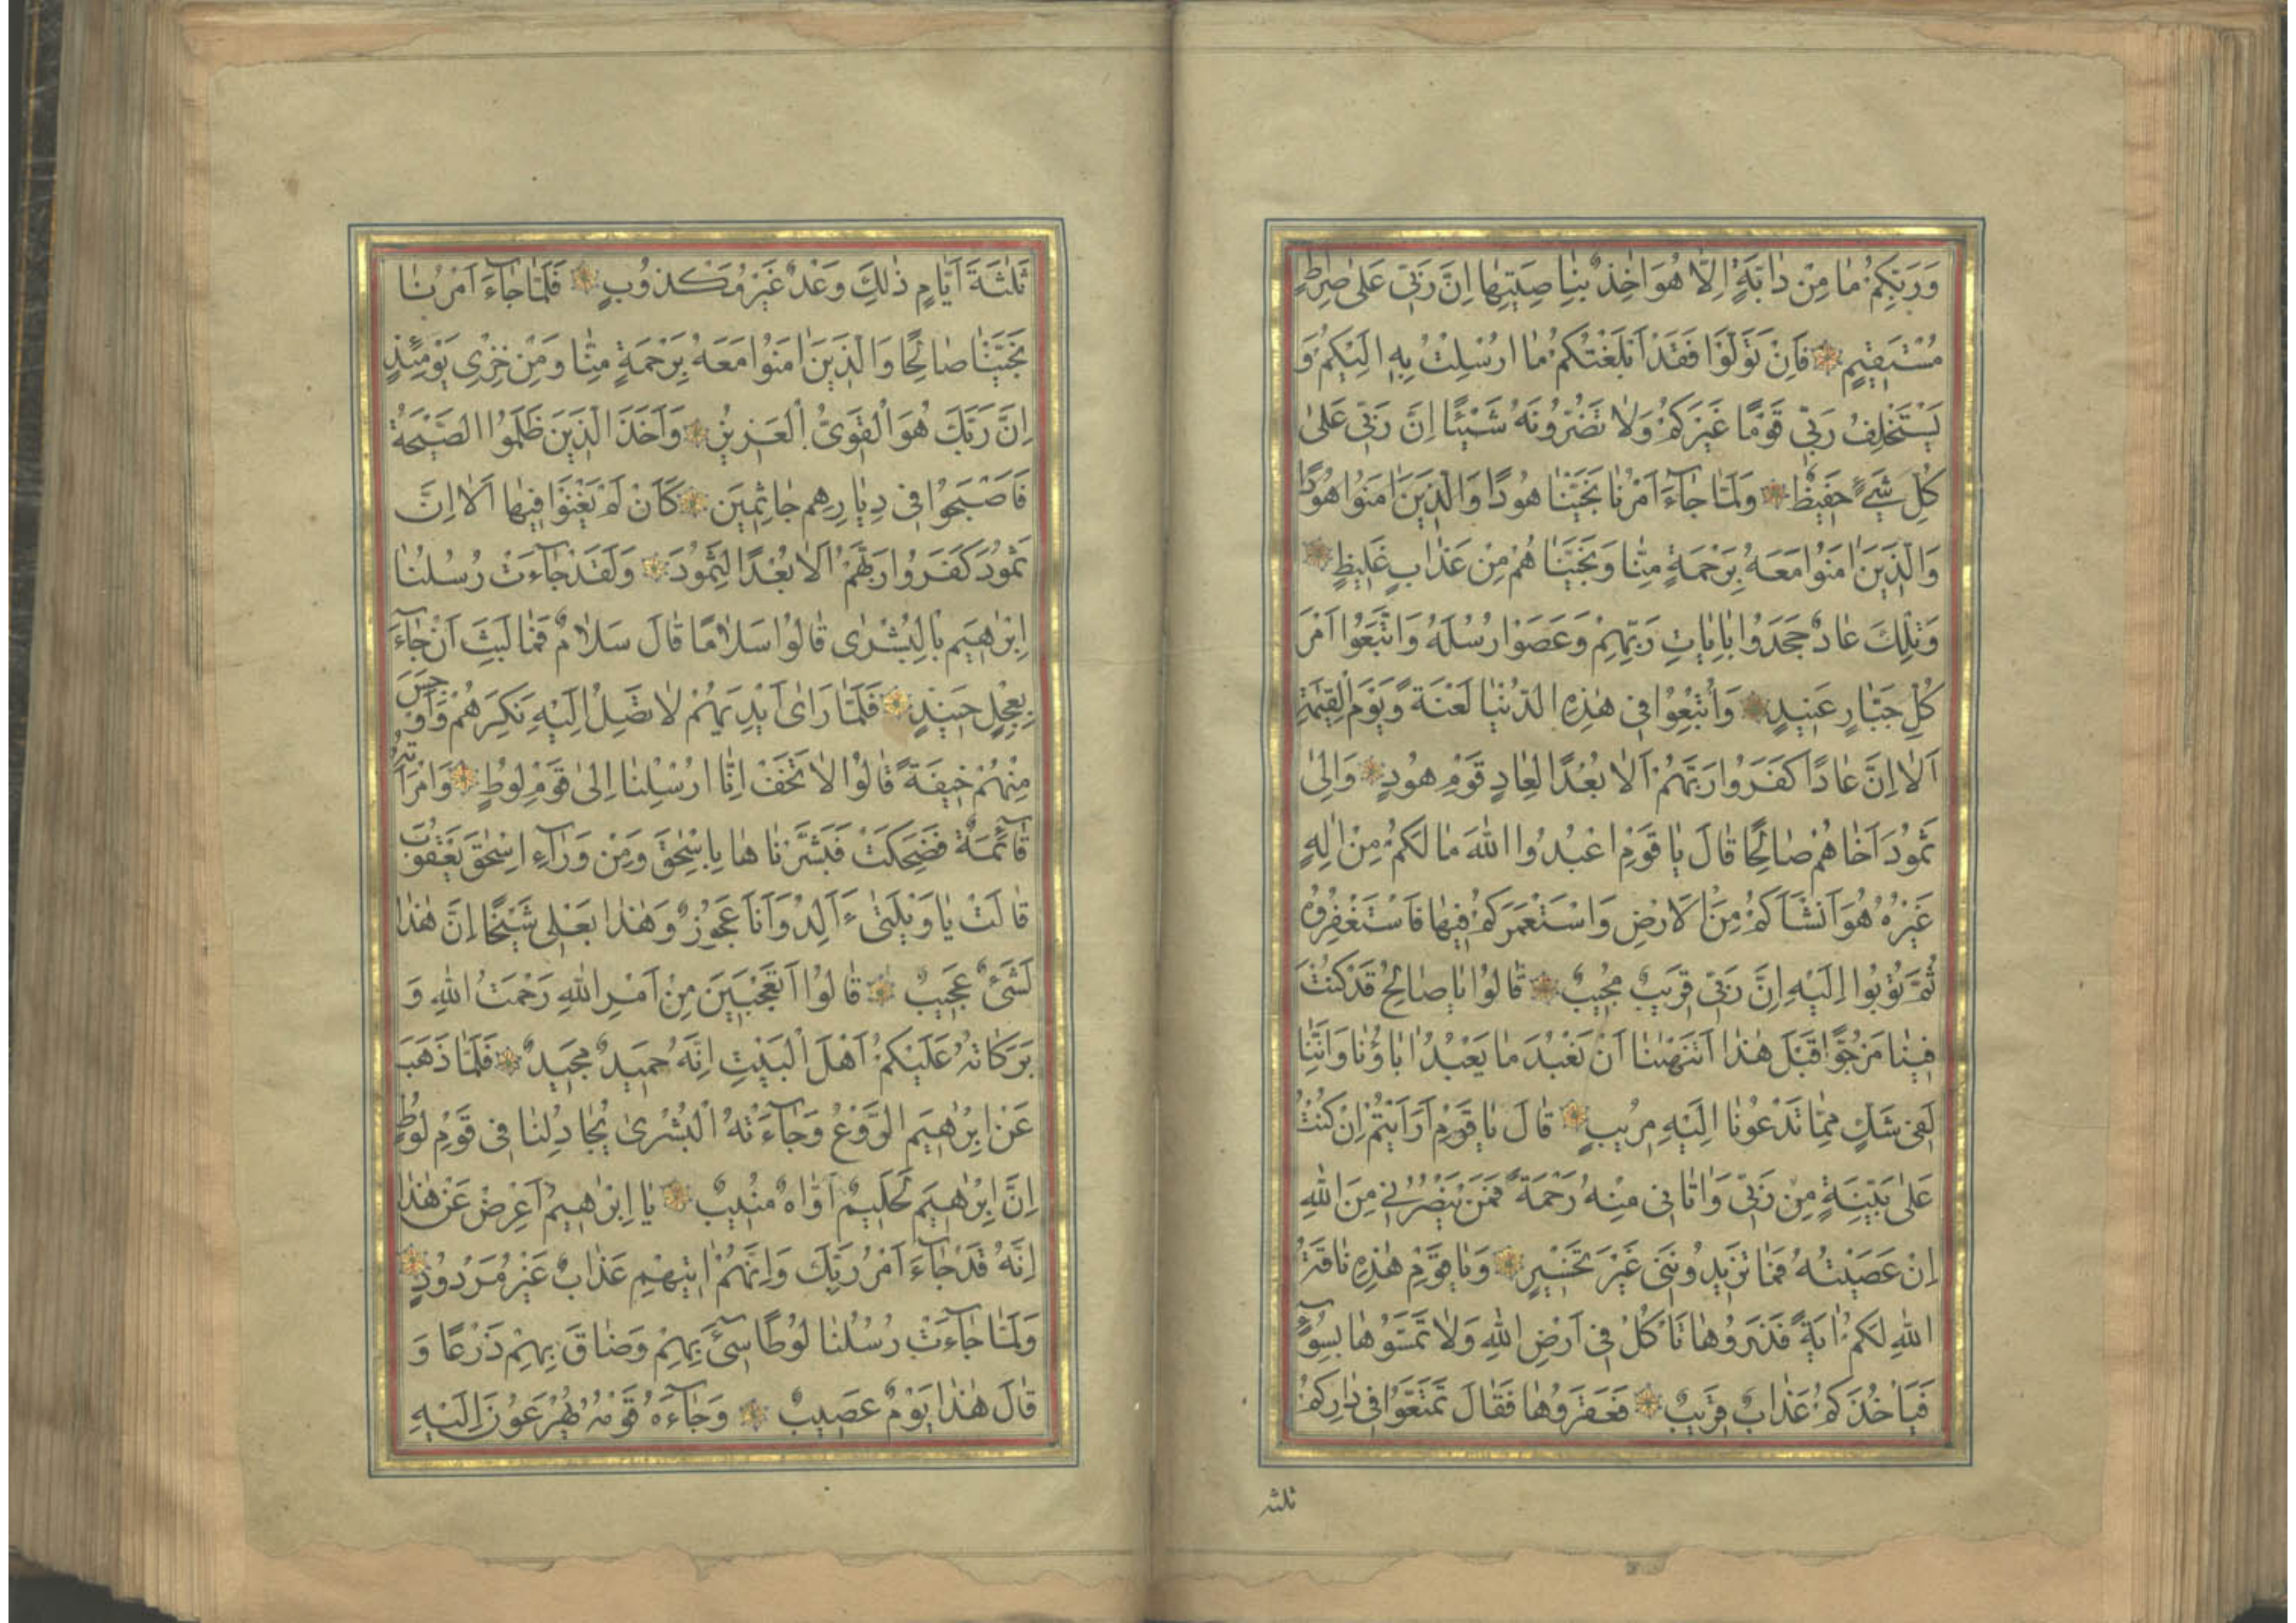 وَرَبِّكُمْ مَا مِنْ دَابَّةٍ اِلَّا هُوَ اٰخِذٌ بِنَاصِيَتِهَا اِنَّ رَبّٖى عَلٰى صِرَاطٍ
مُسْتَقٖيمٍ فَاِنْ تَوَلَّوْا فَقَدْ اَبْلَغْتُكُمْ مَا اُرْسِلْتُ بِهٖ اِلَيْكُمْ وَ
يَسْتَخْلِفُ رَبّٖى قَوْمًا غَيْرَكُمْ وَلَا تَضُرُّونَهُ شَيْئًا اِنَّ رَبّٖى عَلٰى
كُلِّ شَيْءٍ حَفٖيظٌ وَلَمَّا جَاءَ اَمْرُنَا نَجَّيْنَا هُودًا وَالَّذٖينَ اٰمَنُوا هُودًا
وَالَّذٖينَ اٰمَنُوا مَعَهُ بِرَحْمَةٍ مِنَّا وَنَجَّيْنَاهُمْ مِنْ عَذَابٍ غَلٖيظٍ
وَتِلْكَ عَادٌ جَحَدُوا بِاٰيَاتِ رَبِّهِمْ وَعَصَوْا رُسُلَهُ وَاتَّبَعُوا اَمْرَ
كُلِّ جَبَّارٍ عَنٖيدٍ وَاُتْبِعُوا فٖى هٰذِهِ الدُّنْيَا لَعْنَةً وَيَوْمَ الْقِيٰمَةِ
اَلَا اِنَّ عَادًا كَفَرُوا رَبَّهُمْ اَلَا بُعْدًا لِعَادٍ قَوْمِ هُودٍ وَاِلٰى
ثَمُودَ اَخَاهُمْ صَالِحًا قَالَ يَا قَوْمِ اعْبُدُوا اللّٰهَ مَا لَكُمْ مِنْ اِلٰهٍ
غَيْرُهُ هُوَ اَنْشَاَكُمْ مِنَ الْاَرْضِ وَاسْتَعْمَرَكُمْ فٖيهَا فَاسْتَغْفِرُوهُ
ثُمَّ تُوبُوا اِلَيْهِ اِنَّ رَبّٖى قَرٖيبٌ مُجٖيبٌ قَالُوا يَا صَالِحُ قَدْ كُنْتَ
فٖينَا مَرْجُوًّا قَبْلَ هٰذَا اَتَنْهٰينَا اَنْ نَعْبُدَ مَا يَعْبُدُ اٰبَاؤُنَا وَاِنَّنَا
لَفٖى شَكٍّ مِمَّا تَدْعُونَا اِلَيْهِ مُرٖيبٍ قَالَ يَا قَوْمِ اَرَاَيْتُمْ اِنْ كُنْتُ
عَلٰى بَيِّنَةٍ مِنْ رَبّٖى وَاٰتَانٖى مِنْهُ رَحْمَةً فَمَنْ يَنْصُرُنٖى مِنَ اللّٰهِ
اِنْ عَصَيْتُهُ فَمَا تَزٖيدُونَنٖى غَيْرَ تَخْسٖيرٍ وَيَا قَوْمِ هٰذِهٖ نَاقَةُ
اللّٰهِ لَكُمْ اٰيَةً فَذَرُوهَا تَاْكُلْ فٖى اَرْضِ اللّٰهِ وَلَا تَمَسُّوهَا بِسُوءٍ
فَيَاْخُذَكُمْ عَذَابٌ قَرٖيبٌ فَعَقَرُوهَا فَقَالَ تَمَتَّعُوا فٖى دَارِكُمْ
ثلثة
ثَلٰثَةَ اَيَّامٍ ذٰلِكَ وَعْدٌ غَيْرُ مَكْذُوبٍ فَلَمَّا جَاءَ اَمْرُنَا
نَجَّيْنَا صَالِحًا وَالَّذٖينَ اٰمَنُوا مَعَهُ بِرَحْمَةٍ مِنَّا وَمِنْ خِزْىِ يَوْمِئِذٍ
اِنَّ رَبَّكَ هُوَ الْقَوِىُّ الْعَزٖيزُ وَاَخَذَ الَّذٖينَ ظَلَمُوا الصَّيْحَةُ
فَاَصْبَحُوا فٖى دِيَارِهِمْ جَاثِمٖينَ كَاَنْ لَمْ يَغْنَوْا فٖيهَا اَلَا اِنَّ
ثَمُودَ كَفَرُوا رَبَّهُمْ اَلَا بُعْدًا لِثَمُودَ وَلَقَدْ جَاءَتْ رُسُلُنَا
اِبْرٰهٖيمَ بِالْبُشْرٰى قَالُوا سَلَامًا قَالَ سَلَامٌ فَمَا لَبِثَ اَنْ جَاءَ
بِعِجْلٍ حَنٖيذٍ فَلَمَّا رَاٰى اَيْدِيَهُمْ لَا تَصِلُ اِلَيْهِ نَكِرَهُمْ وَاَوْجَسَ
مِنْهُمْ خٖيفَةً قَالُوا لَا تَخَفْ اِنَّا اُرْسِلْنَا اِلٰى قَوْمِ لُوطٍ وَامْرَاَتُهُ
قَائِمَةٌ فَضَحِكَتْ فَبَشَّرْنَاهَا بِاِسْحٰقَ وَمِنْ وَرَاءِ اِسْحٰقَ يَعْقُوبَ
قَالَتْ يَا وَيْلَتٰى ءَاَلِدُ وَاَنَا عَجُوزٌ وَهٰذَا بَعْلٖى شَيْخًا اِنَّ هٰذَا
لَشَىْءٌ عَجٖيبٌ قَالُوا اَتَعْجَبٖينَ مِنْ اَمْرِ اللّٰهِ رَحْمَتُ اللّٰهِ وَ
بَرَكَاتُهُ عَلَيْكُمْ اَهْلَ الْبَيْتِ اِنَّهُ حَمٖيدٌ مَجٖيدٌ فَلَمَّا ذَهَبَ
عَنْ اِبْرٰهٖيمَ الرَّوْعُ وَجَاءَتْهُ الْبُشْرٰى يُجَادِلُنَا فٖى قَوْمِ لُوطٍ
اِنَّ اِبْرٰهٖيمَ لَحَلٖيمٌ اَوَّاهٌ مُنٖيبٌ يَا اِبْرٰهٖيمُ اَعْرِضْ عَنْ هٰذَا
اِنَّهُ قَدْ جَاءَ اَمْرُ رَبِّكَ وَاِنَّهُمْ اٰتٖيهِمْ عَذَابٌ غَيْرُ مَرْدُودٍ
وَلَمَّا جَاءَتْ رُسُلُنَا لُوطًا سٖىءَ بِهِمْ وَضَاقَ بِهِمْ ذَرْعًا وَ
قَالَ هٰذَا يَوْمٌ عَصٖيبٌ وَجَاءَهُ قَوْمُهُ يُهْرَعُونَ اِلَيْهِ